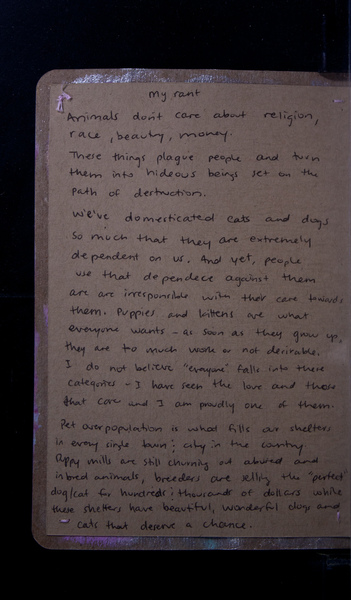 my rant
Animals don't care about religion,
race, beauty, money.
These things plague people and turn
them into hideous beings set on the
path of destruction.
We've domesticated cats and dogs
so much that they are extremely
dependent on us. And yet, people
use that dependece against them
are are irresponsible with their care towards
them. Puppies and kittens are what
everyone wants - as soon as they grow up,
they are to much work or not desirable.
I do not believe "everyone" falls into these
categories - I have seen the love and those
that care and I am proudly one of them.
Pet overpopulation is what fills our shelters
in every single town & city in the country.
Puppy mills are still churning out abused and
inbred animals, breeders are selling the "perfect"
dog/cat for hundreds & thousands of dollars while
these shelters have beautiful, wonderful dogs and
cats that deserve a chance.